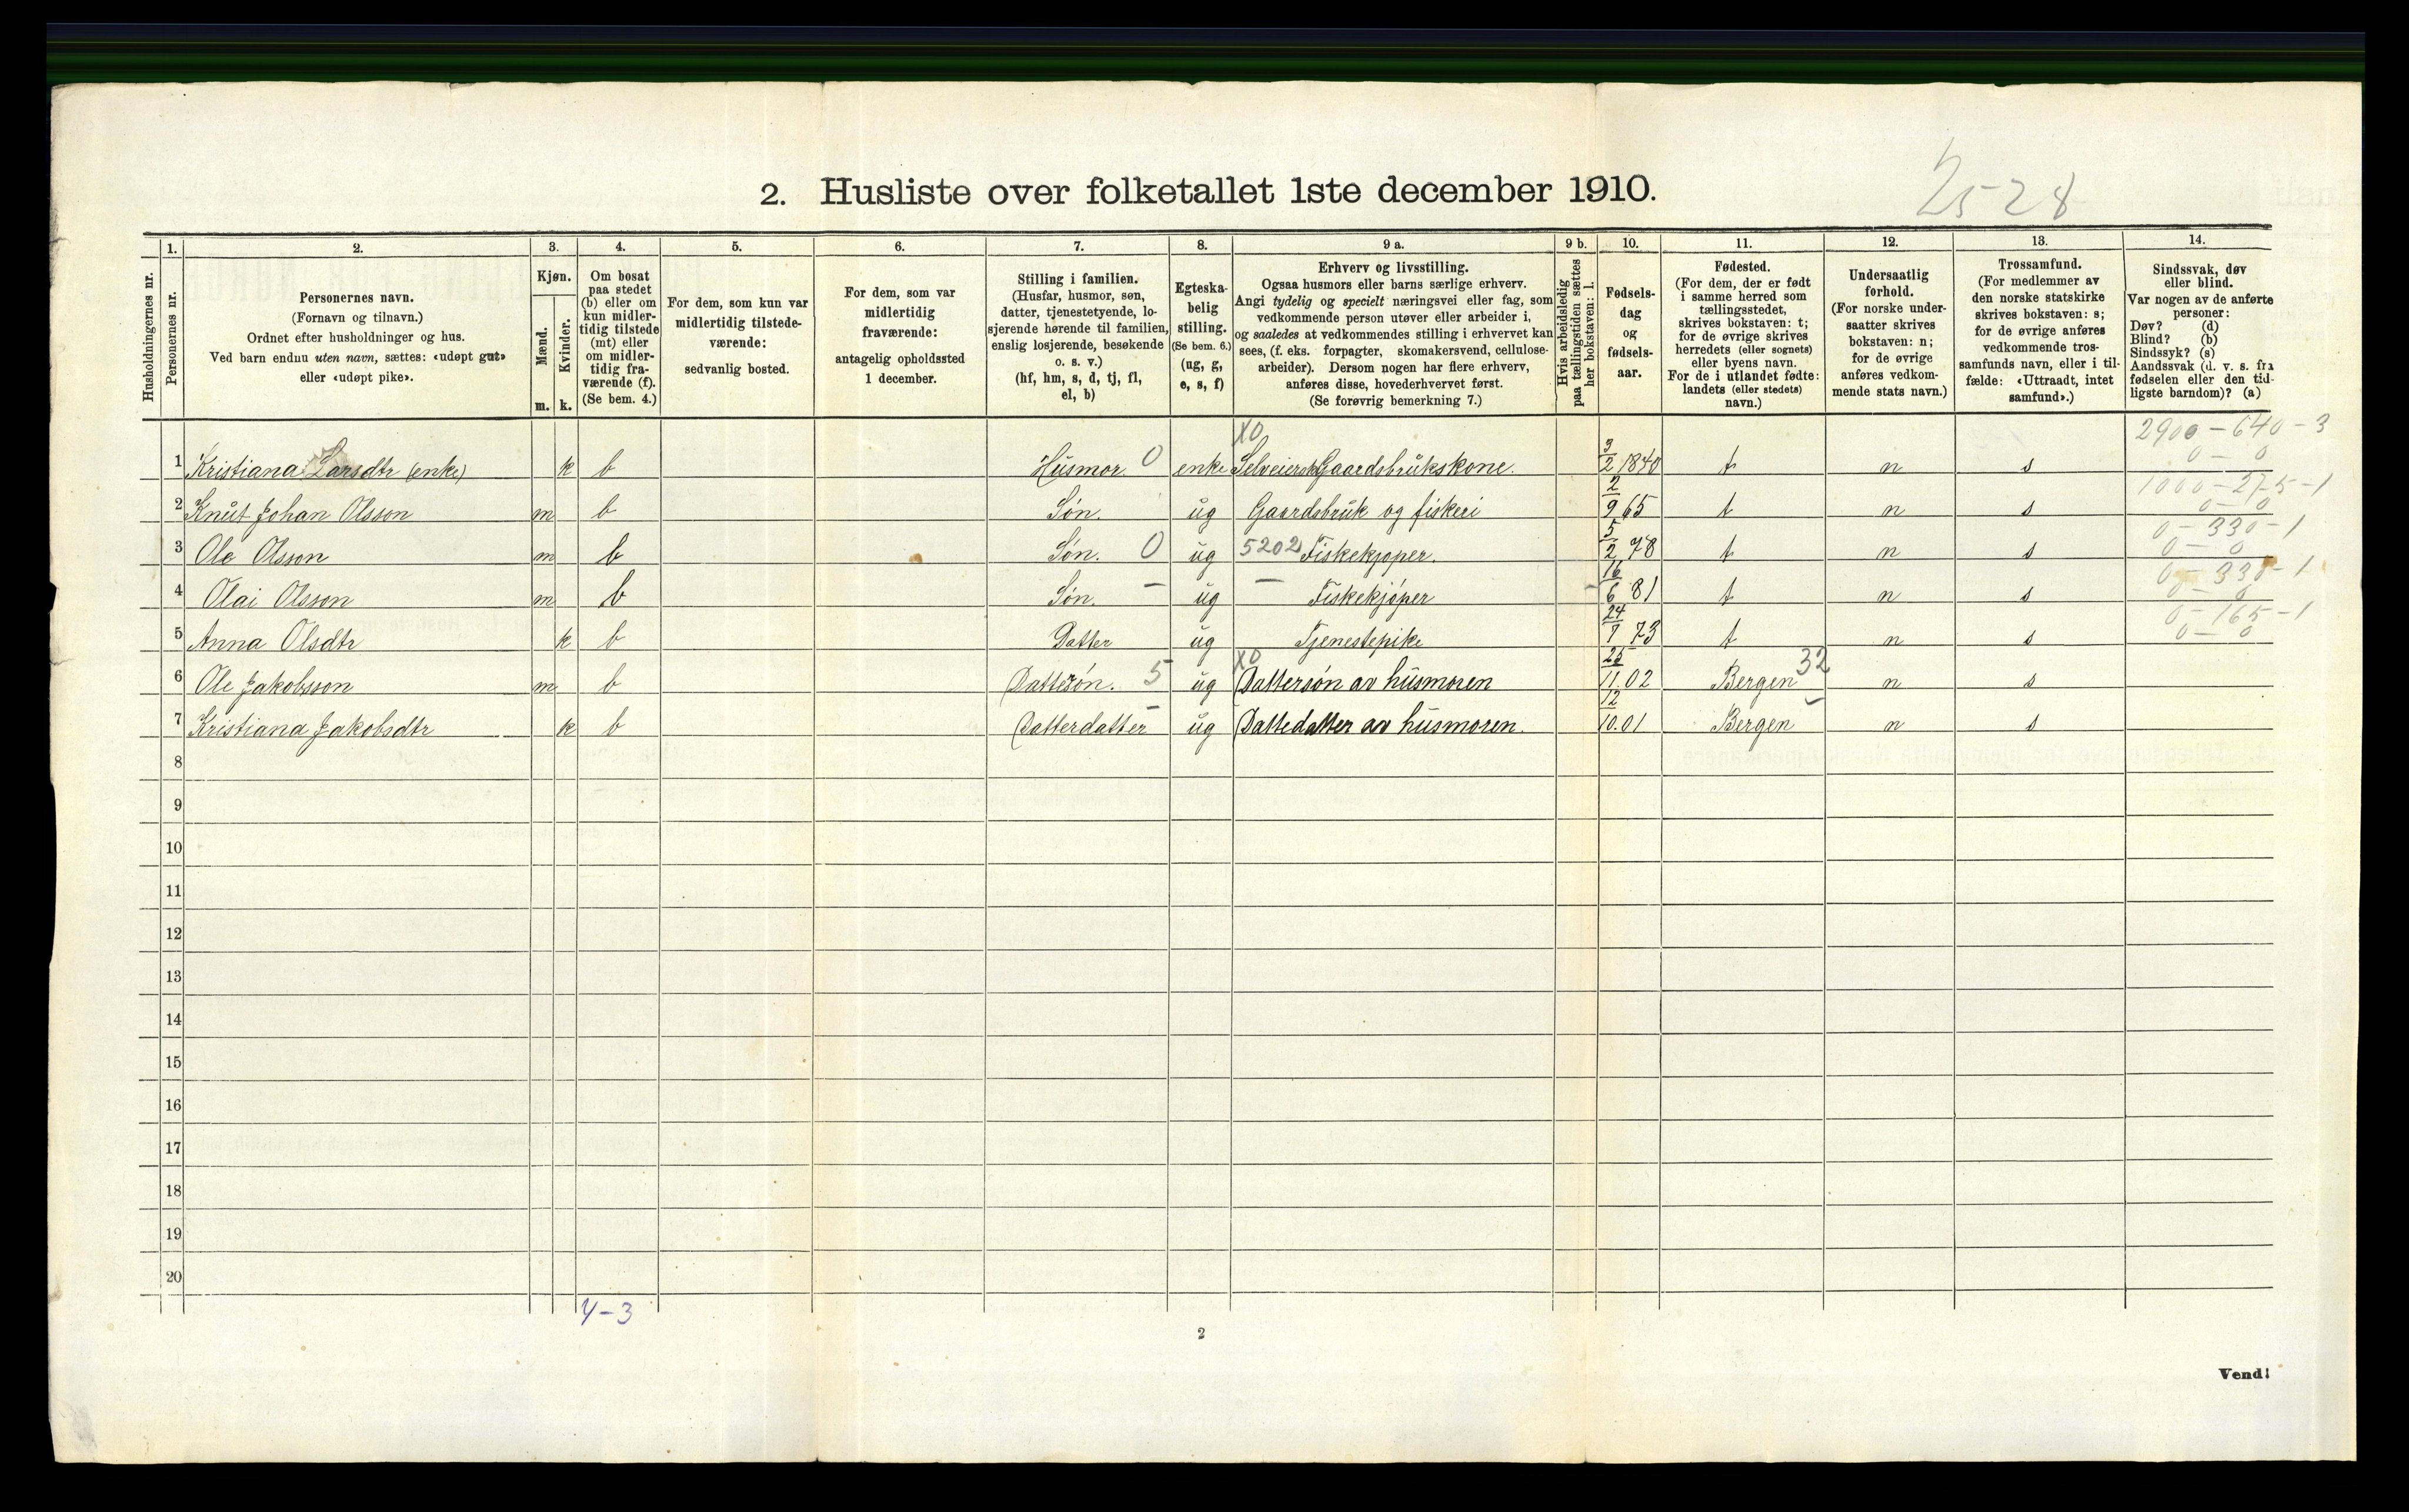 2528
2. Husliste over folketallet 1ste december 1910.
Husholdningernes nr.
1. Personernes nr.
2. Personernes navn. (Fornavn og tilnavn.) Ordnet efter husholdninger og hus. Ved barn endnu uten navn, sættes: «udøpt gut» eller «udøpt pike».
3. Kjøn. Mænd. m. Kvinder. k.
4. Om bosat paa stedet (b) eller om kun midlertidig tilstede (mt) eller om midlertidig fraværende (f). (Se bem. 4.)
5. For dem, som kun var midlertidig tilstedeværende: sedvanlig bosted.
6. For dem, som var midlertidig fraværende: antagelig opholdssted 1 december.
7. Stilling i familien. (Husfar, husmor, søn, datter, tjenestetyende, losjerende hørende til familien, enslig losjerende, besøkende o. s. v.) (hf, hm, s, d, tj, fl, el, b)
8. Egteskabelig stilling. (Se bem. 6.) (ug, g, e, s, f)
9 a. Erhverv og livsstilling. Ogsaa husmors eller barns særlige erhverv. Angi tydelig og specielt næringsvei eller fag, som vedkommende person utøver eller arbeider i, og saaledes at vedkommendes stilling i erhvervet kan sees, (f. eks. forpagter, skomakersvend, cellulosearbeider). Dersom nogen har flere erhverv, anføres disse, hovederhvervet først. (Se forøvrig bemerkning 7.)
9 b. Hvis arbeidsledig paa tællingstiden sættes her bokstaven: l.
10. Fødselsdag og fødselsaar.
11. Fødested. (For dem, der er født i samme herred som tællingsstedet, skrives bokstaven: t; for de øvrige skrives herredets (eller sognets) eller byens navn. For de i utlandet fødte: landets (eller stedets) navn.)
12. Undersaatlig forhold. (For norske undersaatter skrives bokstaven: n; for de øvrige anføres vedkommende stats navn.)
13. Trossamfund. (For medlemmer av den norske statskirke skrives bokstaven: s; for de øvrige anføres vedkommende trossamfunds navn, eller i tilfælde: «Uttraadt, intet samfund».)
14. Sindssvak, døv eller blind. Var nogen av de anførte personer: Døv? (d) Blind? (b) Sindssyk? (s) Aandssvak (d. v. s. fra fødselen eller den tidligste barndom)? (a)
1 Kristiana Larsdtr (enke) k b Husmor 0 enke X0 Selveiersk Gaardsbrukskone. 3/2 1840 t n s 2900-640-3 0-0
2 Knut Johan Olsson m b Søn. ug Gaardsbruk og fiskeri 2/9 65 t n s 1000-275-1 0-0
3 Ole Olsson m b Søn. 0 ug 5202 Fiskekjøper. 5/2 78 t n s 0-330-1 0-0
4 Olai Olsson m b Søn. - ug - Fiskekjøper 16/6 81 t n s 0-330-1 0-0
5 Anna Olsdtr k b Datter ug Tjenestepike 24/7 73 t n s 0-165-1 0-0
6 Ole Jakobsson m b Dattersøn. 5 ug X0 Dattersøn av husmoren 25/11.02 Bergen 32 n s
7 Kristiana Jakobsdtr k b Datterdatter - ug Dattedatter av husmoren. 12/10.01 Bergen n s
8
9
10
11
12
13
14
15
16
17
18
19
20
4-3
2
Vend!